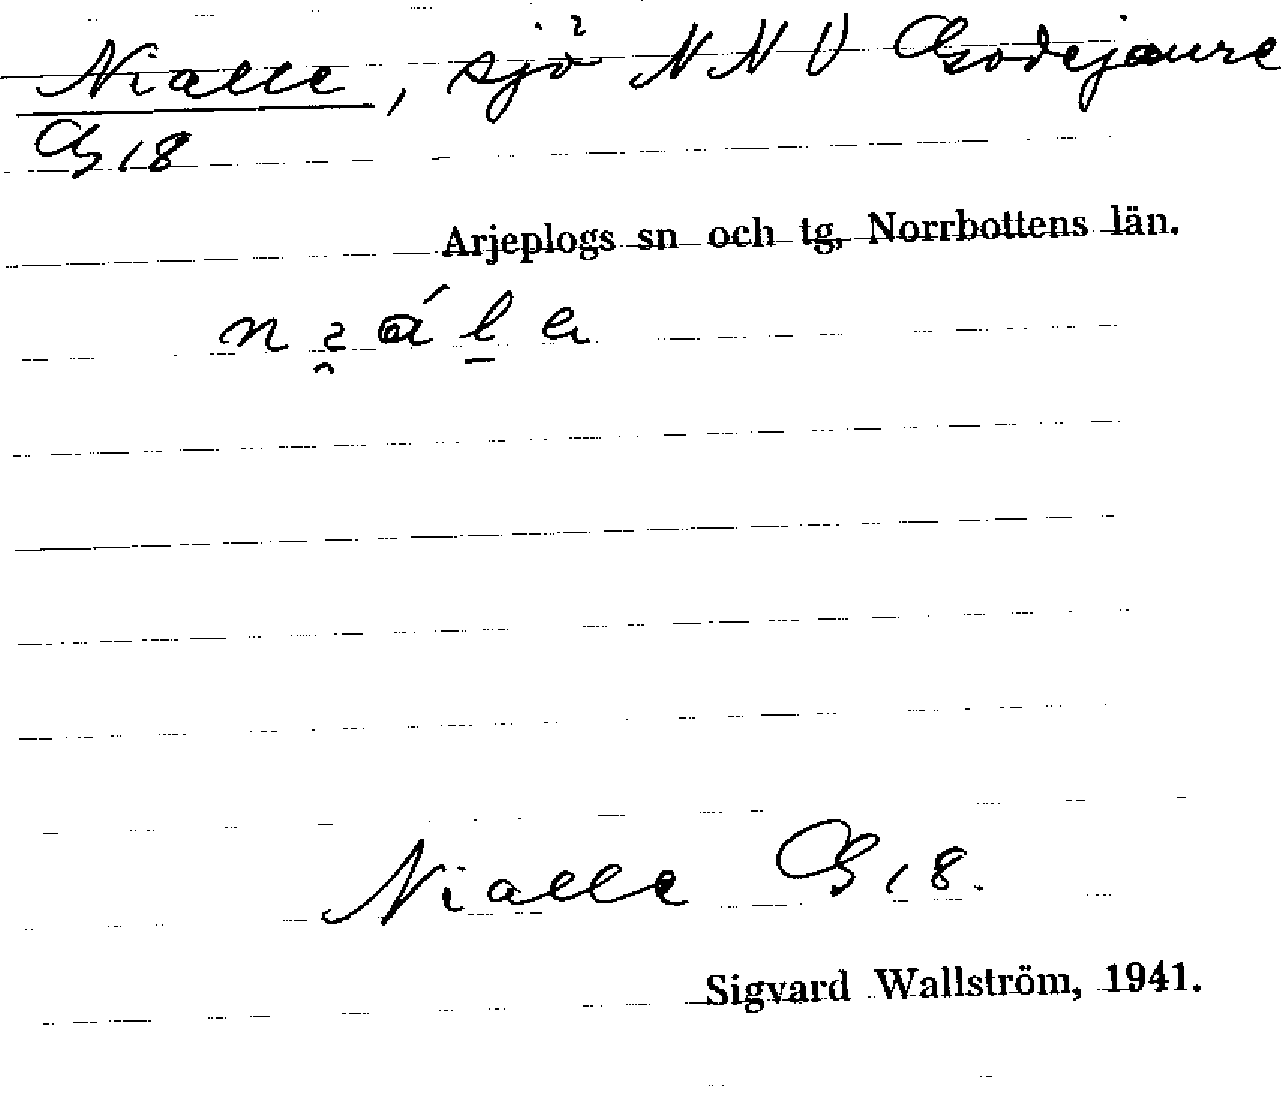 Nialle, sjö NNV Godejaure
G 18
Arjeplogs sn och tg, Norrbottens län.
Nialle G 18.
Sigvard Wallström, 1941.